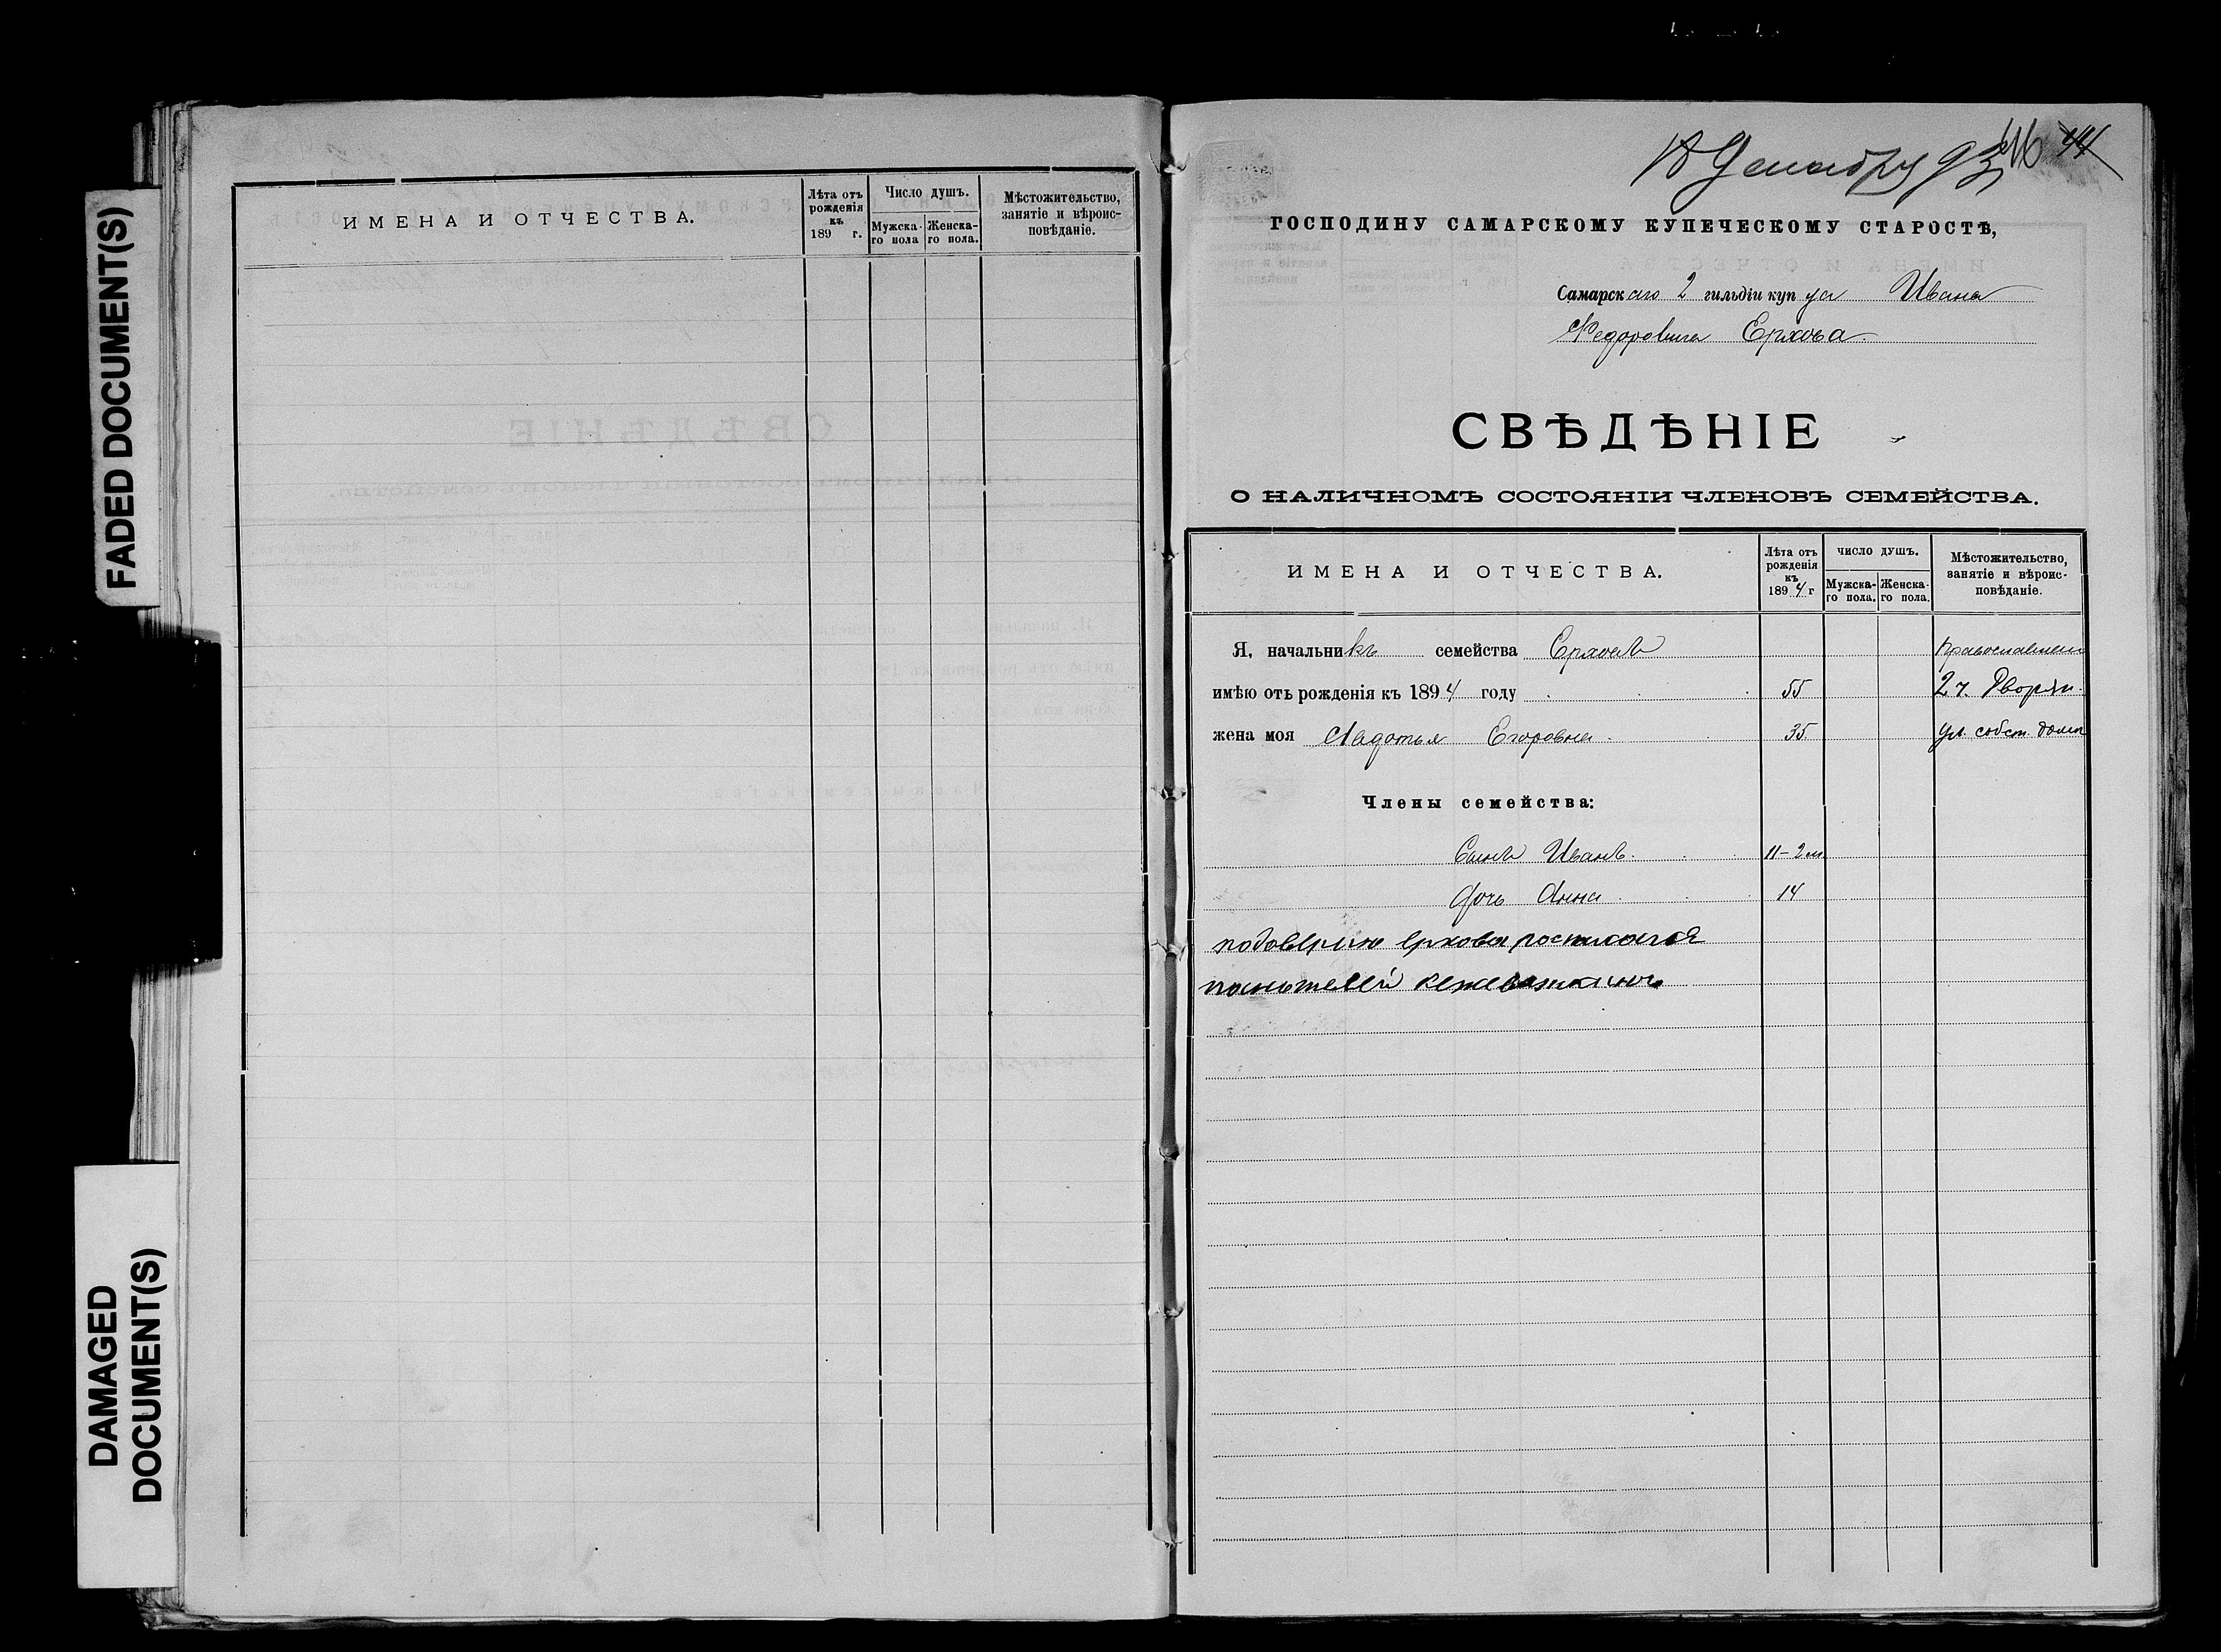 FADED DOCUMENT(S)
DAMAGED
DOCUMENT(S)
ИМЕНА И ОТЧЕСТВА.
Лѣта отъ
рожденія
къ
189 г.
Число душъ.
Мужска-
го пола
Женска-
го пола.
Мѣстожительство,
занятіе и вѣроис-
повѣданіе.
Декабря 93
44
ГОСПОДИНУ САМАРСКОМУ КУПЕЧЕСКОМУ СТАРОСТѢ,
Самарскаго 2 гильдіи купца Ивана
Федоровича Ерхова.
СВѢДѢНІЕ
О НАЛИЧНОМЪ СОСТОЯНІИ ЧЛЕНОВЪ СЕМЕЙСТВА.
ИМЕНА И ОТЧЕСТВА.
Лѣта отъ
рожденія
къ
1894 г
ЧИСЛО ДУШЪ.
Мужска-
го пола.
Женска-
го пола.
Мѣстожительство,
занятіе и вѣроис-
повѣданіе.
Я, начальникъ семейства Ерховъ
имѣю отъ рожденія къ 1894 году 55 2 ч. Дворян.
жена моя Авдотья Егоровна 35 ул. собст. домъ
Члены семейства:
Сынъ Иванъ. 11-2 м
Дочь Анна 14